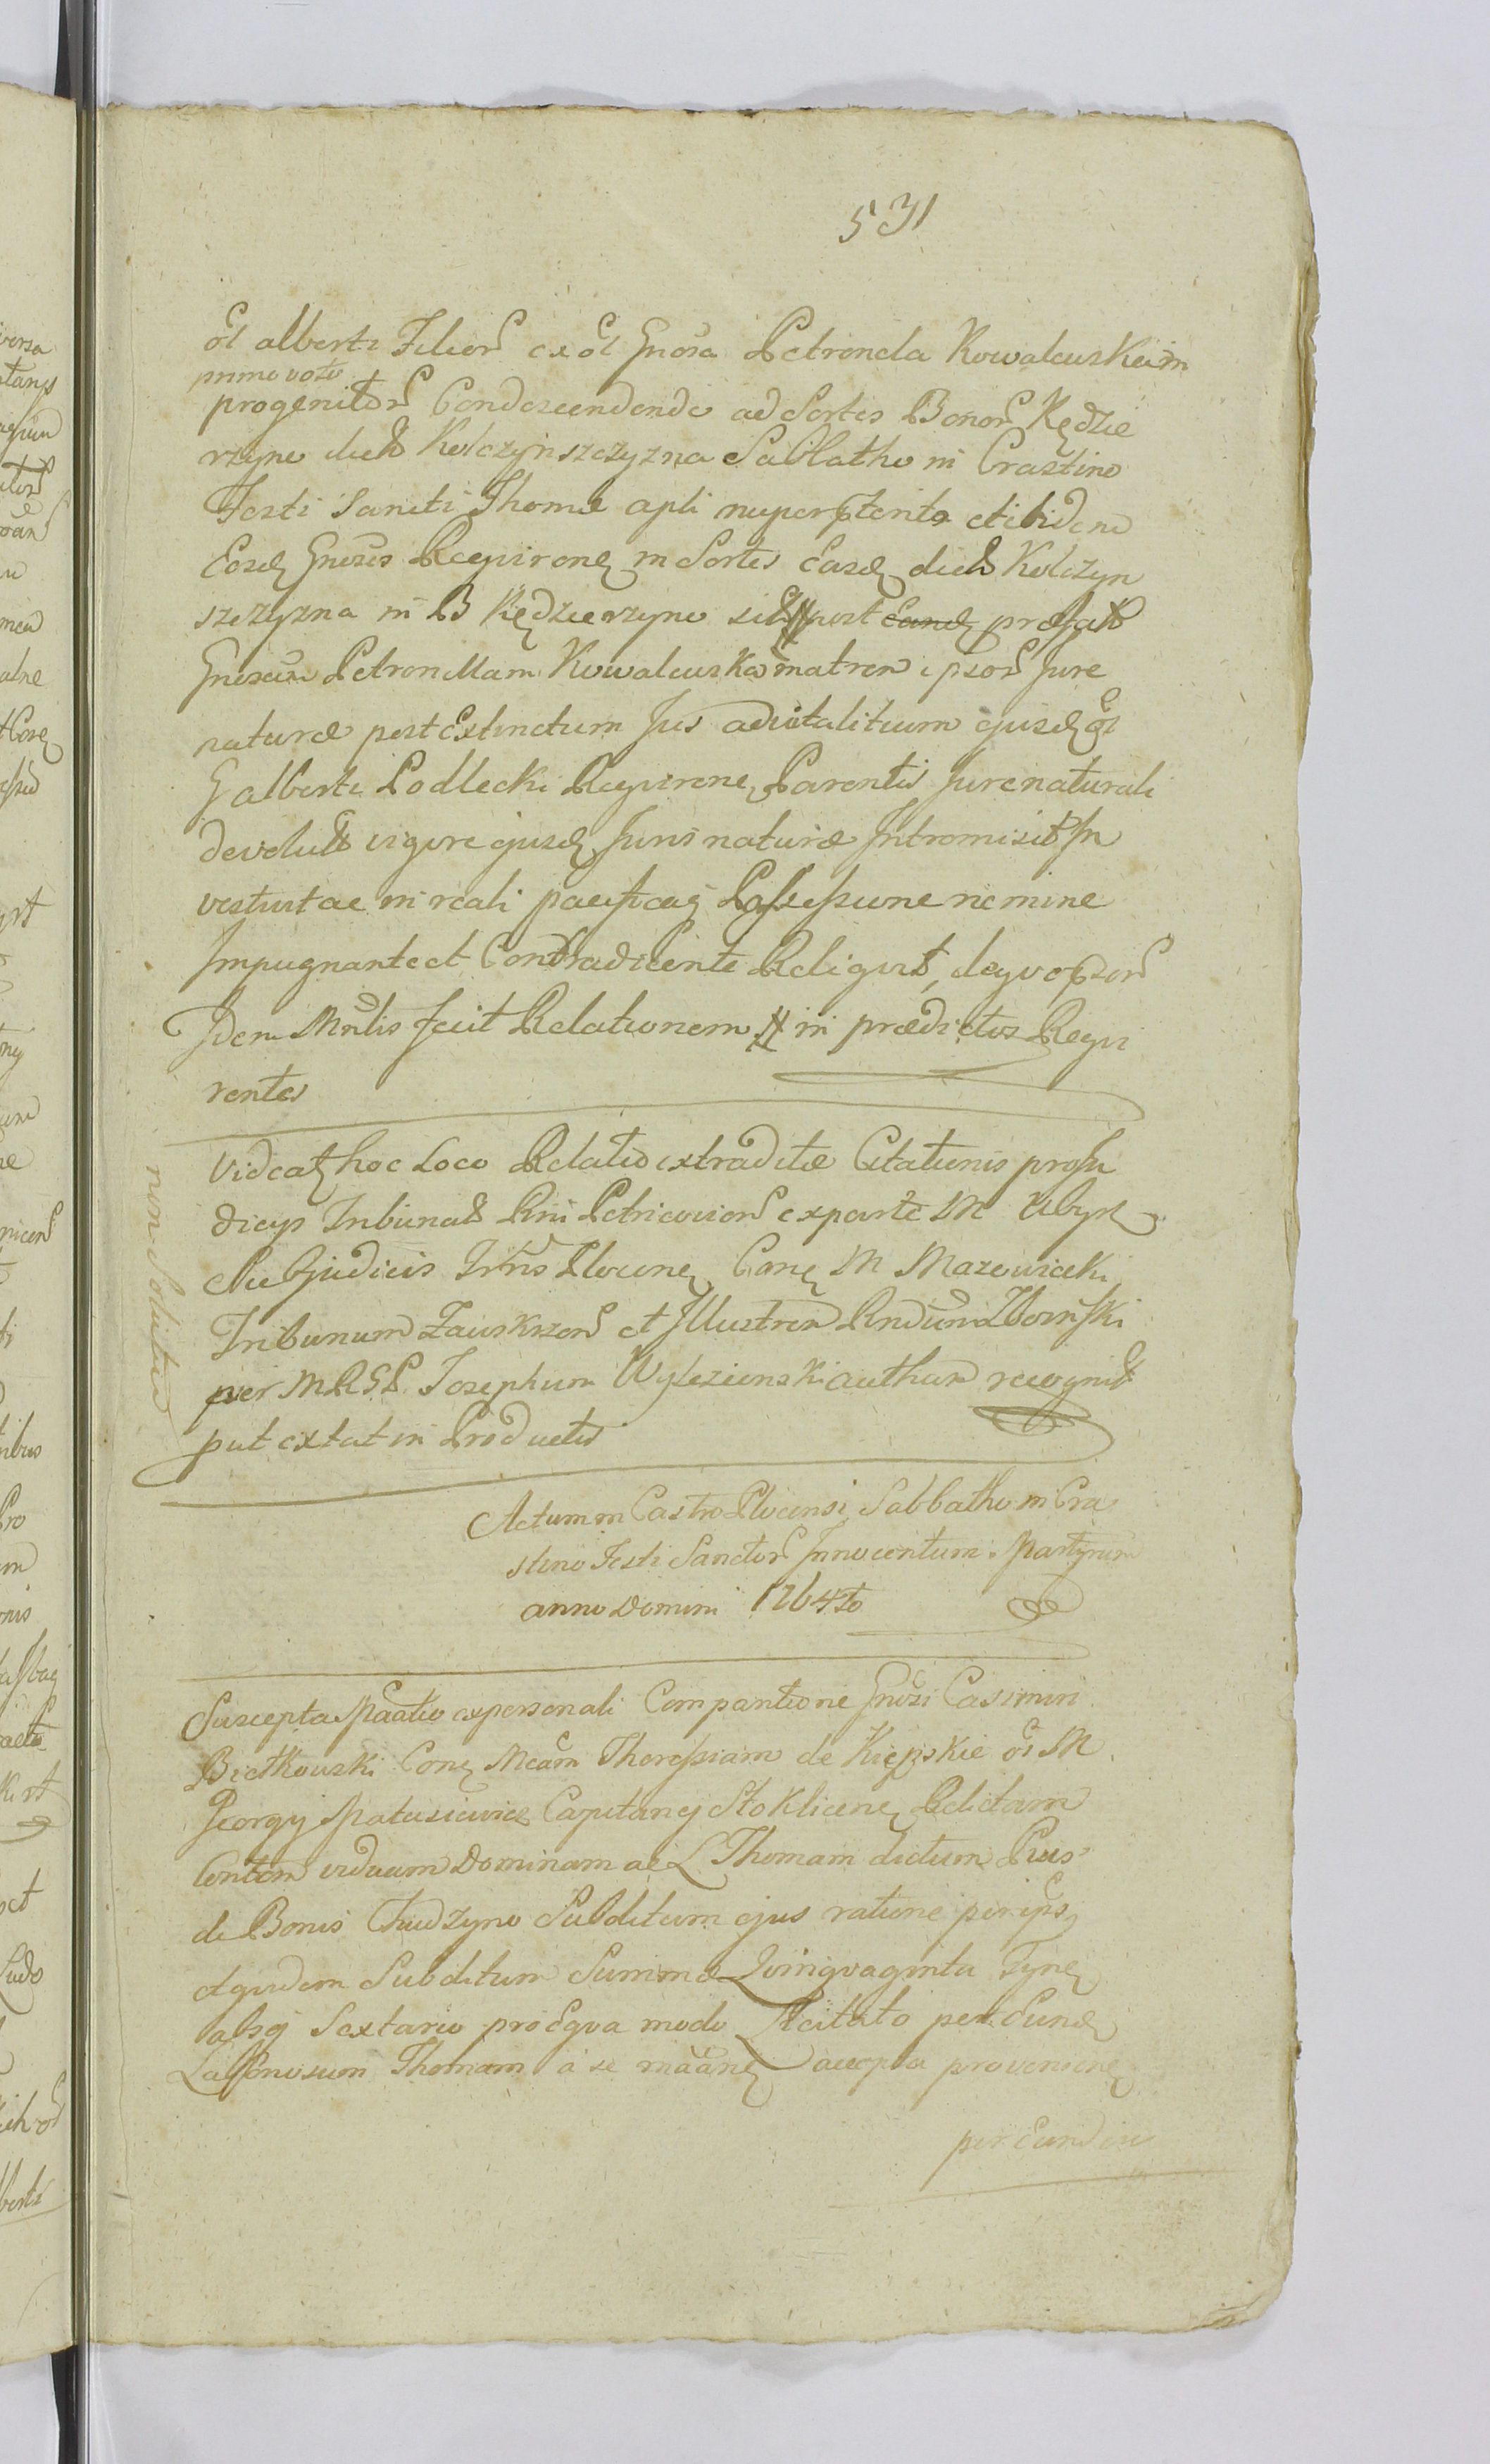 531
ol alberti Filior ex ol Gnosa Petronela Kowalewskaim
primo voto
progenitor Condescendendo ad Sortes Bonor Kędzie
rzyno dict Kolczynszczyzna Sabbatho in Crastino
Festi Sancti Thomæ apli nuperpterito et ibidem
Eosd Gnosos Reqvirone in Sortes Easd dict Kolczyn
szczyzna in B Kędzierzyno sit post præfat
Gnosam Petronellam Kowalewska matrem ipsor Jure
naturæ post Extinctum Jus advitalitium ejusd ol
G alberti Podlecki Reqvirene Parentis Jure naturali
devolut vigore ejusd Juris naturæ Intromisit In
vestivit ac in reali pacificaq Possessione nemine
Impugnante et Contradicente Reliqvit, de qvo
Idem Mnlis fecit Relationem in prædictos Reqvi
rentes
Videat hoc Loco Relatio extraditæ Citationis pro Ju
dicys Tribunal Rni Petricovien ex parte M
SubJudicis Trrns Plocene Cone M Mazowiecki
Tribunum Zawskrzen et Illustrem Rndum Zboinski
per MRGP Josephum Wylezienski authum recognit
put extat in Productis
non Solutu
Actum in Castro Plocensi Sabbatho in Cra
stino Festi Sanctor Innocentum Martyrum
anno Domini 1764to
Suscepta Ptatio ex personali Comparitione Gnosi Casimiri
Bietkowski Cone Mcam Theressiam de Kiępskie ol M
Georgy Matusiewicz Capitanej Stoklicene Relictam
Conttm viduam Dominam ac L Thomam dictum Prus
de Bonis Tudzyno Subditum ejus ratione per ips
et qvidem Subditum Summæ Qvinqvaginta Tyne
absq Sextario pro Eqva modo Licitato per Eund
Laboriosum Thomam a se accepta proveniene
per Eundem